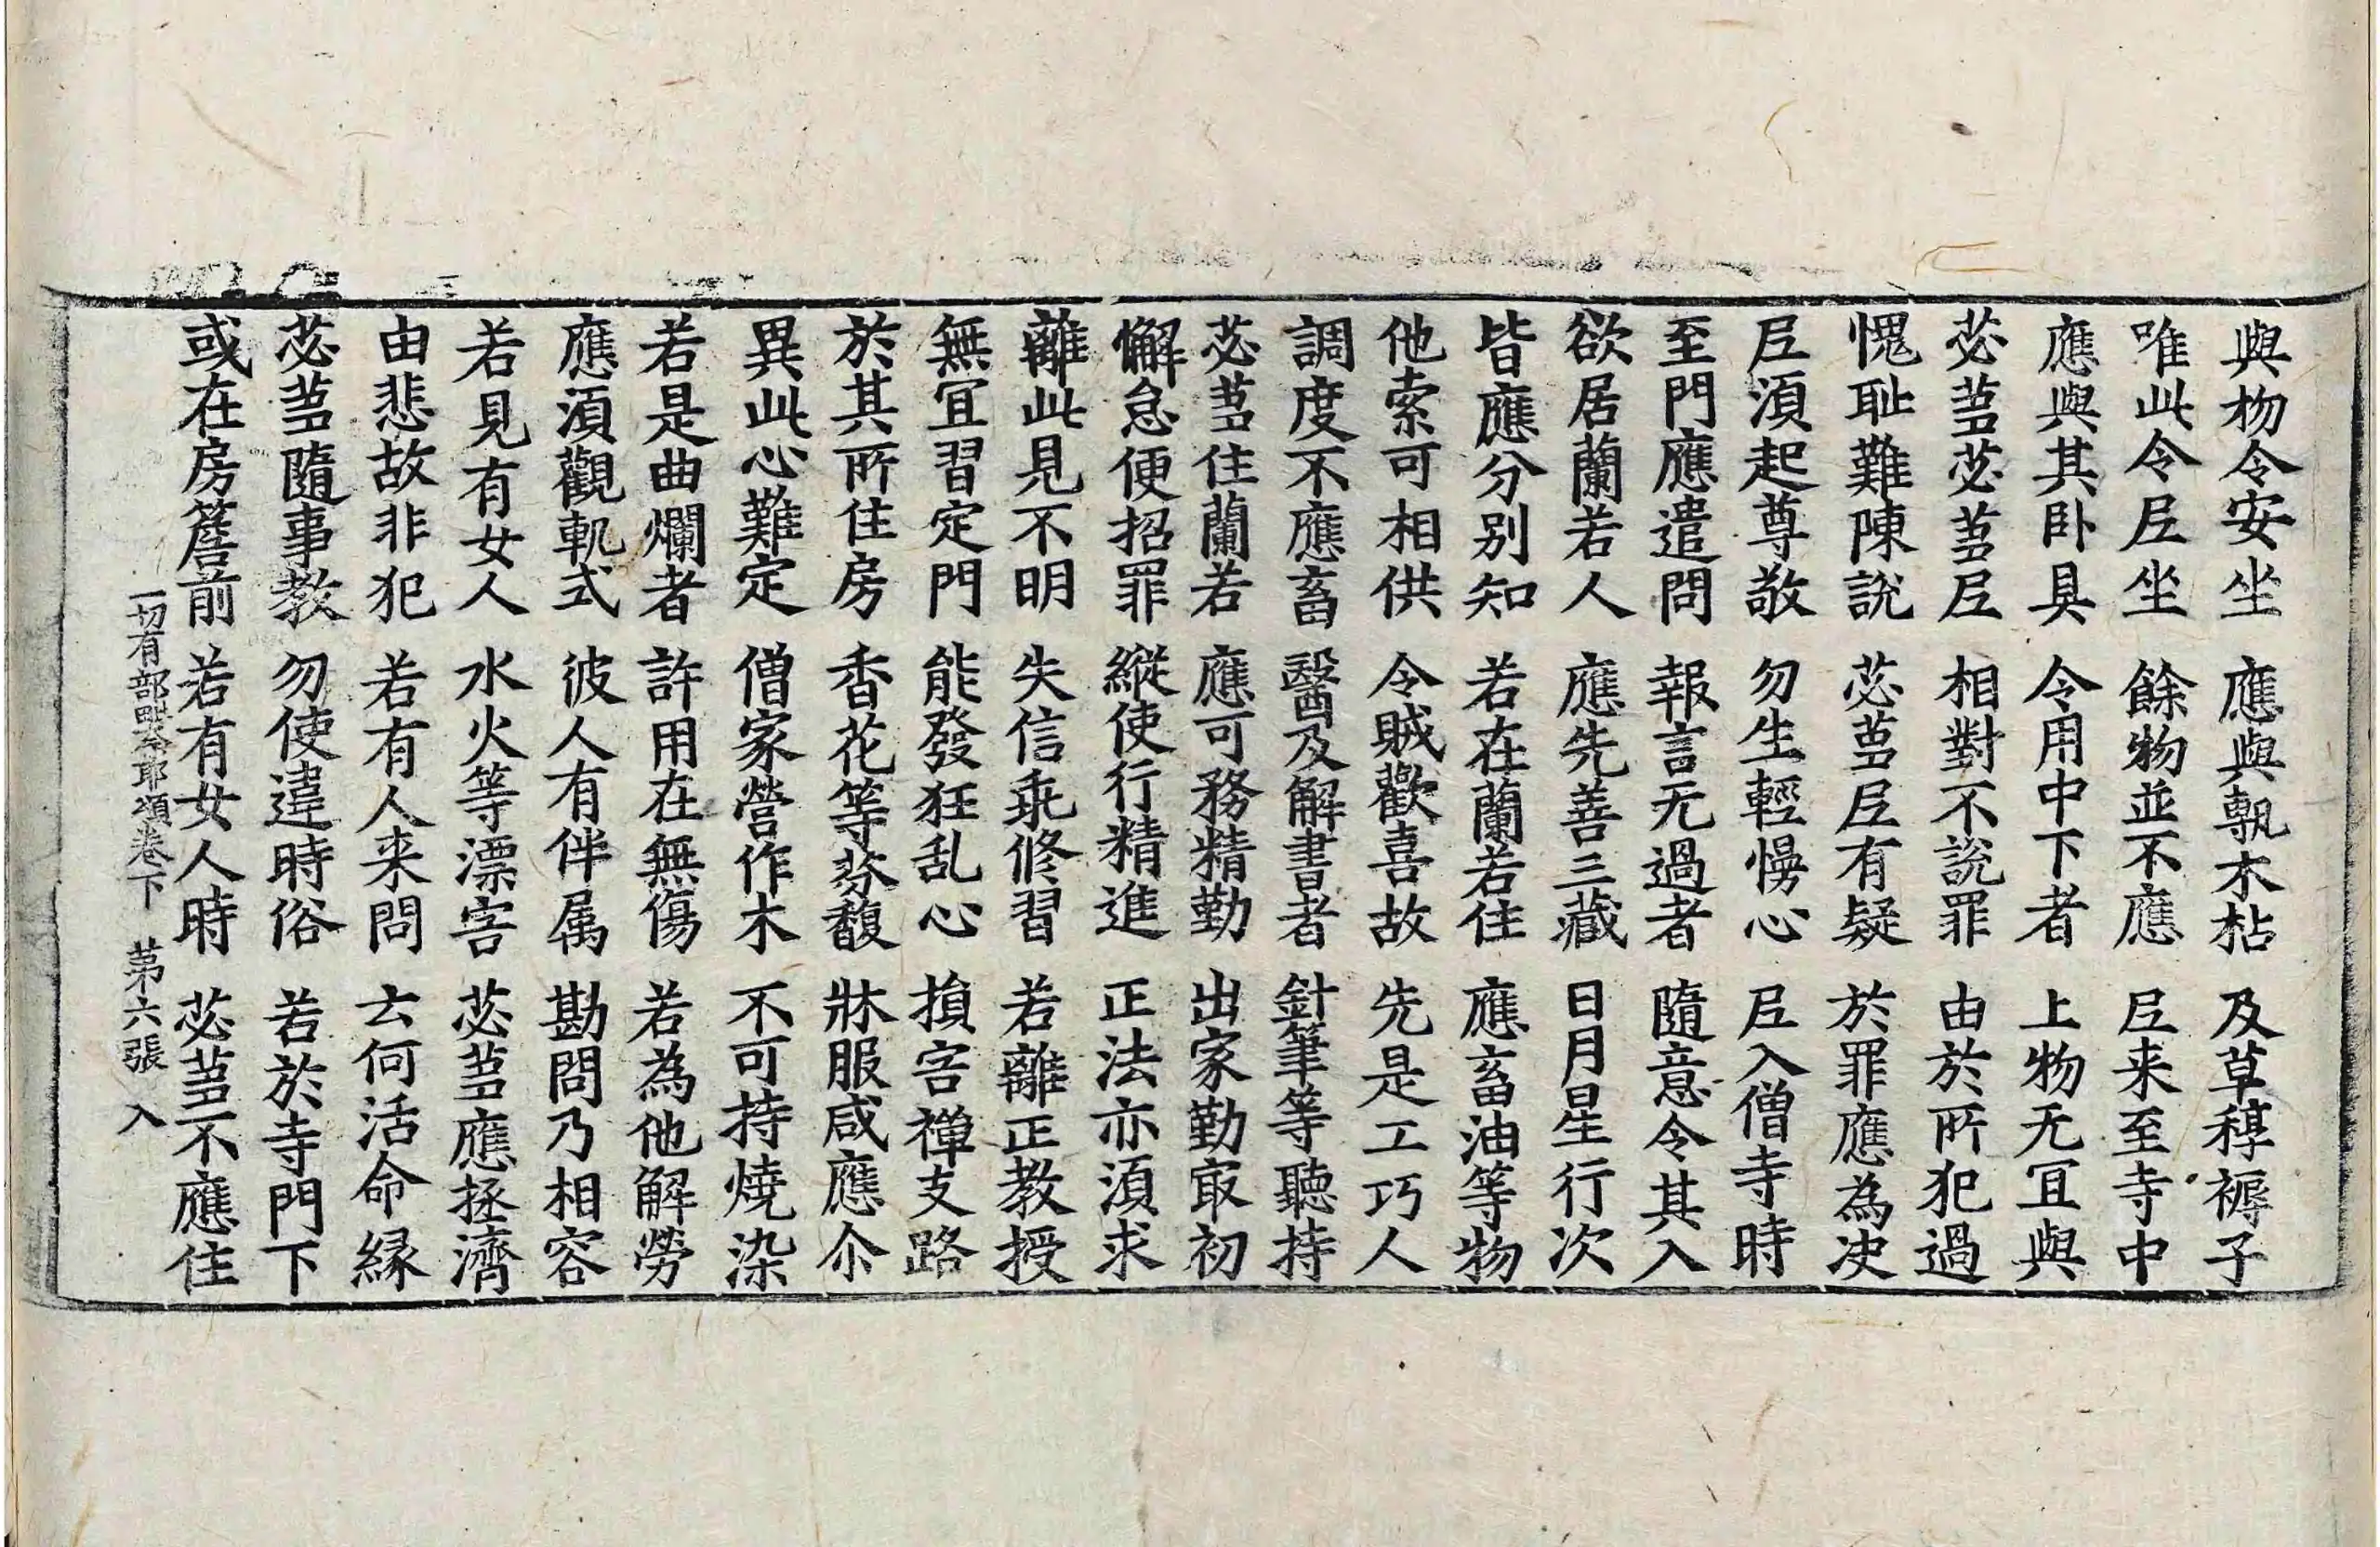 與物令安坐 應與軓木枮 及草稕褥子
唯此令𡰱坐 餘物並不應 𡰱来至寺中
應與其卧具 令用中下者 上物无宜與
苾蒭苾蒭𡰱 相對不說罪 由於所犯過
愧耻難陳說 苾蒭𡰱有疑 於罪應為决
𡰱湏起尊敬 勿生輕慢心 𡰱入僧寺時
至門應遣問 報言无過者 隨意令其入
欲居蘭若人 應先善三藏 日月星行次
皆應分别知 若在蘭若住 應畜油等物
他索可相供 令賊歡喜故 先是工巧人
調度不應畜 醫及解書者 針筆等聽持
苾蒭住蘭若 應可務精勤 出家勤㝡初
懈怠便招罪 縱使行精進 正法亦湏求
離此見不明 失信乖修習 若離正教授
無宜習定門 能發狂乱心 損害禅支路
於其所住房 香花等芬馥 牀服咸應尒
異此心難定 僧家營作木 不可持燒染
若是曲爛者 許用在無傷 若為他解勞
應湏觀軌式 彼人有伴属 勘問乃相容
若見有女人 水火等漂害 苾蒭應拯濟
由悲故非犯 若有人来問 云何活命縁
苾蒭隨事教 勿使違時俗 若於寺門下
或在房簷前 若有女人時 苾蒭不應住
一切有部毗奈耶頌卷下 苐六張 入